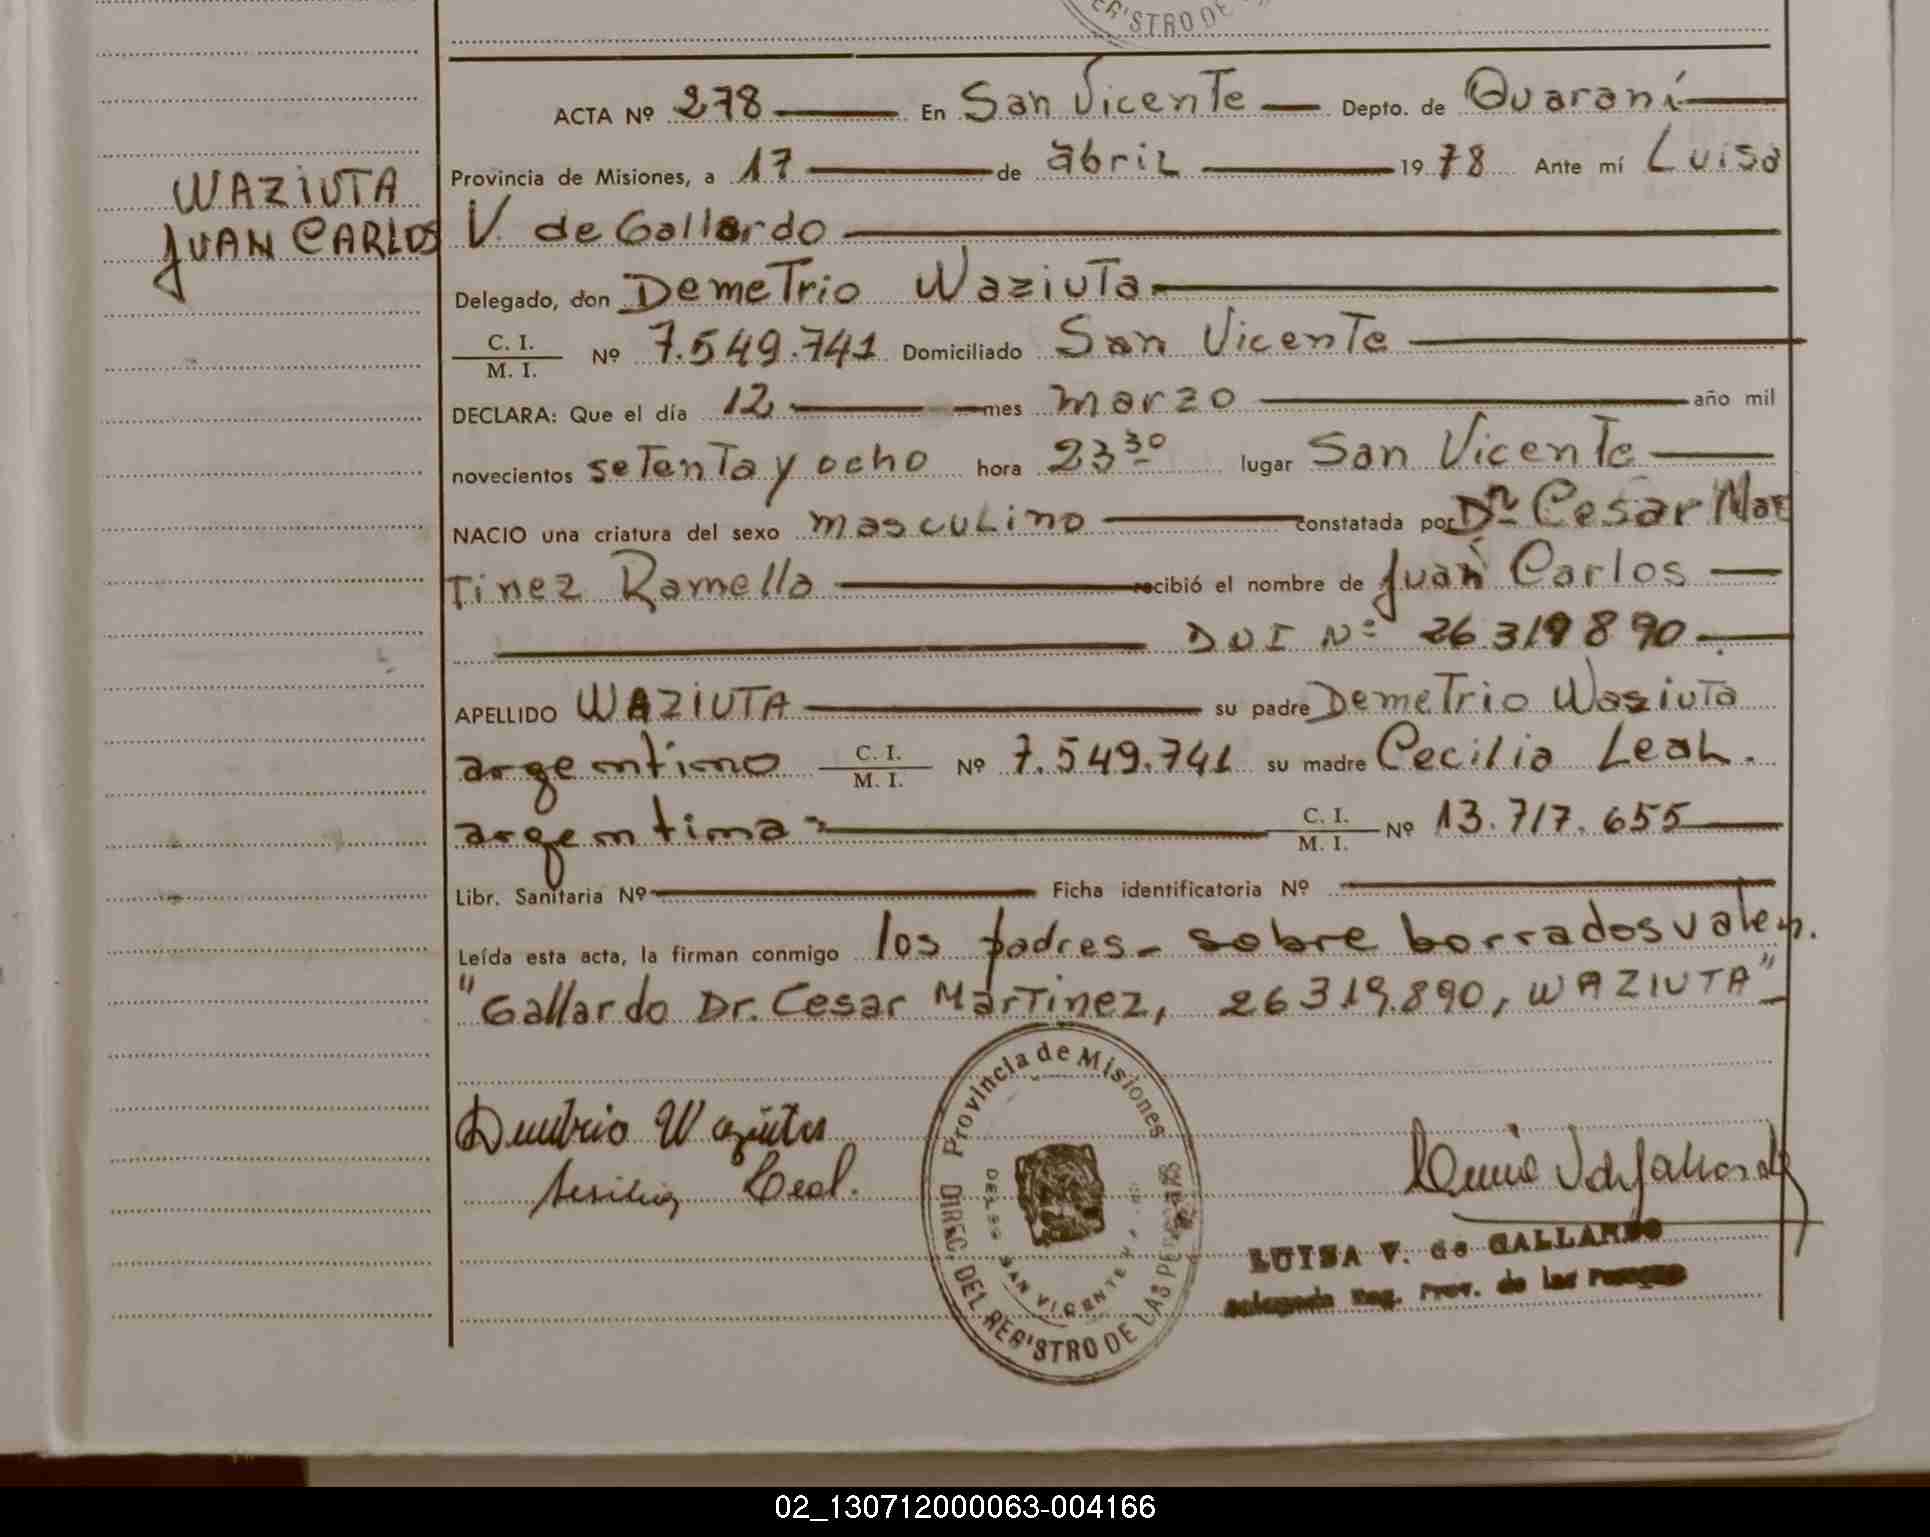 REGISTRO DE
ACTA Nº 278 En San Vicente Depto. de Guaraní
Provincia de Misiones, a 17 de abril 1978 Ante mí Luisa
WAZIUTA
JUAN CARLOS
V. de Gallardo
Delegado, don Demetrio Waziuta
C. I.
M. I. Nº 7.549.741 Domiciliado San Vicente
DECLARA: Que el día 12 mes marzo año mil
novecientos setenta y ocho hora 23 30 lugar San Vicente
NACIO una criatura del sexo masculino constatada por Dr. Cesar Mar
tinez Ramella recibió el nombre de Juan Carlos
DNI Nº 26.319890
APELLIDO WAZIUTA su padre Demetrio Waziuta
argentino C. I.
M. I. Nº 7.549.741 su madre Cecilia Leal.
argentina C. I.
M. I. Nº 13.717.655
Libr. Sanitaria Nº Ficha identificatoria Nº
Leída esta acta, la firman conmigo los padres. sobre borrados valen.
"Gallardo Dr. Cesar Martinez, 26319.890, WAZIUTA"
Provincia de Misiones
DIREC. DEL REGISTRO DE LAS PERSONAS
SAN VICENTE
LUISA V. de GALLARDO
Delegada Reg. Prov. de las Personas
02_130712000063-004166